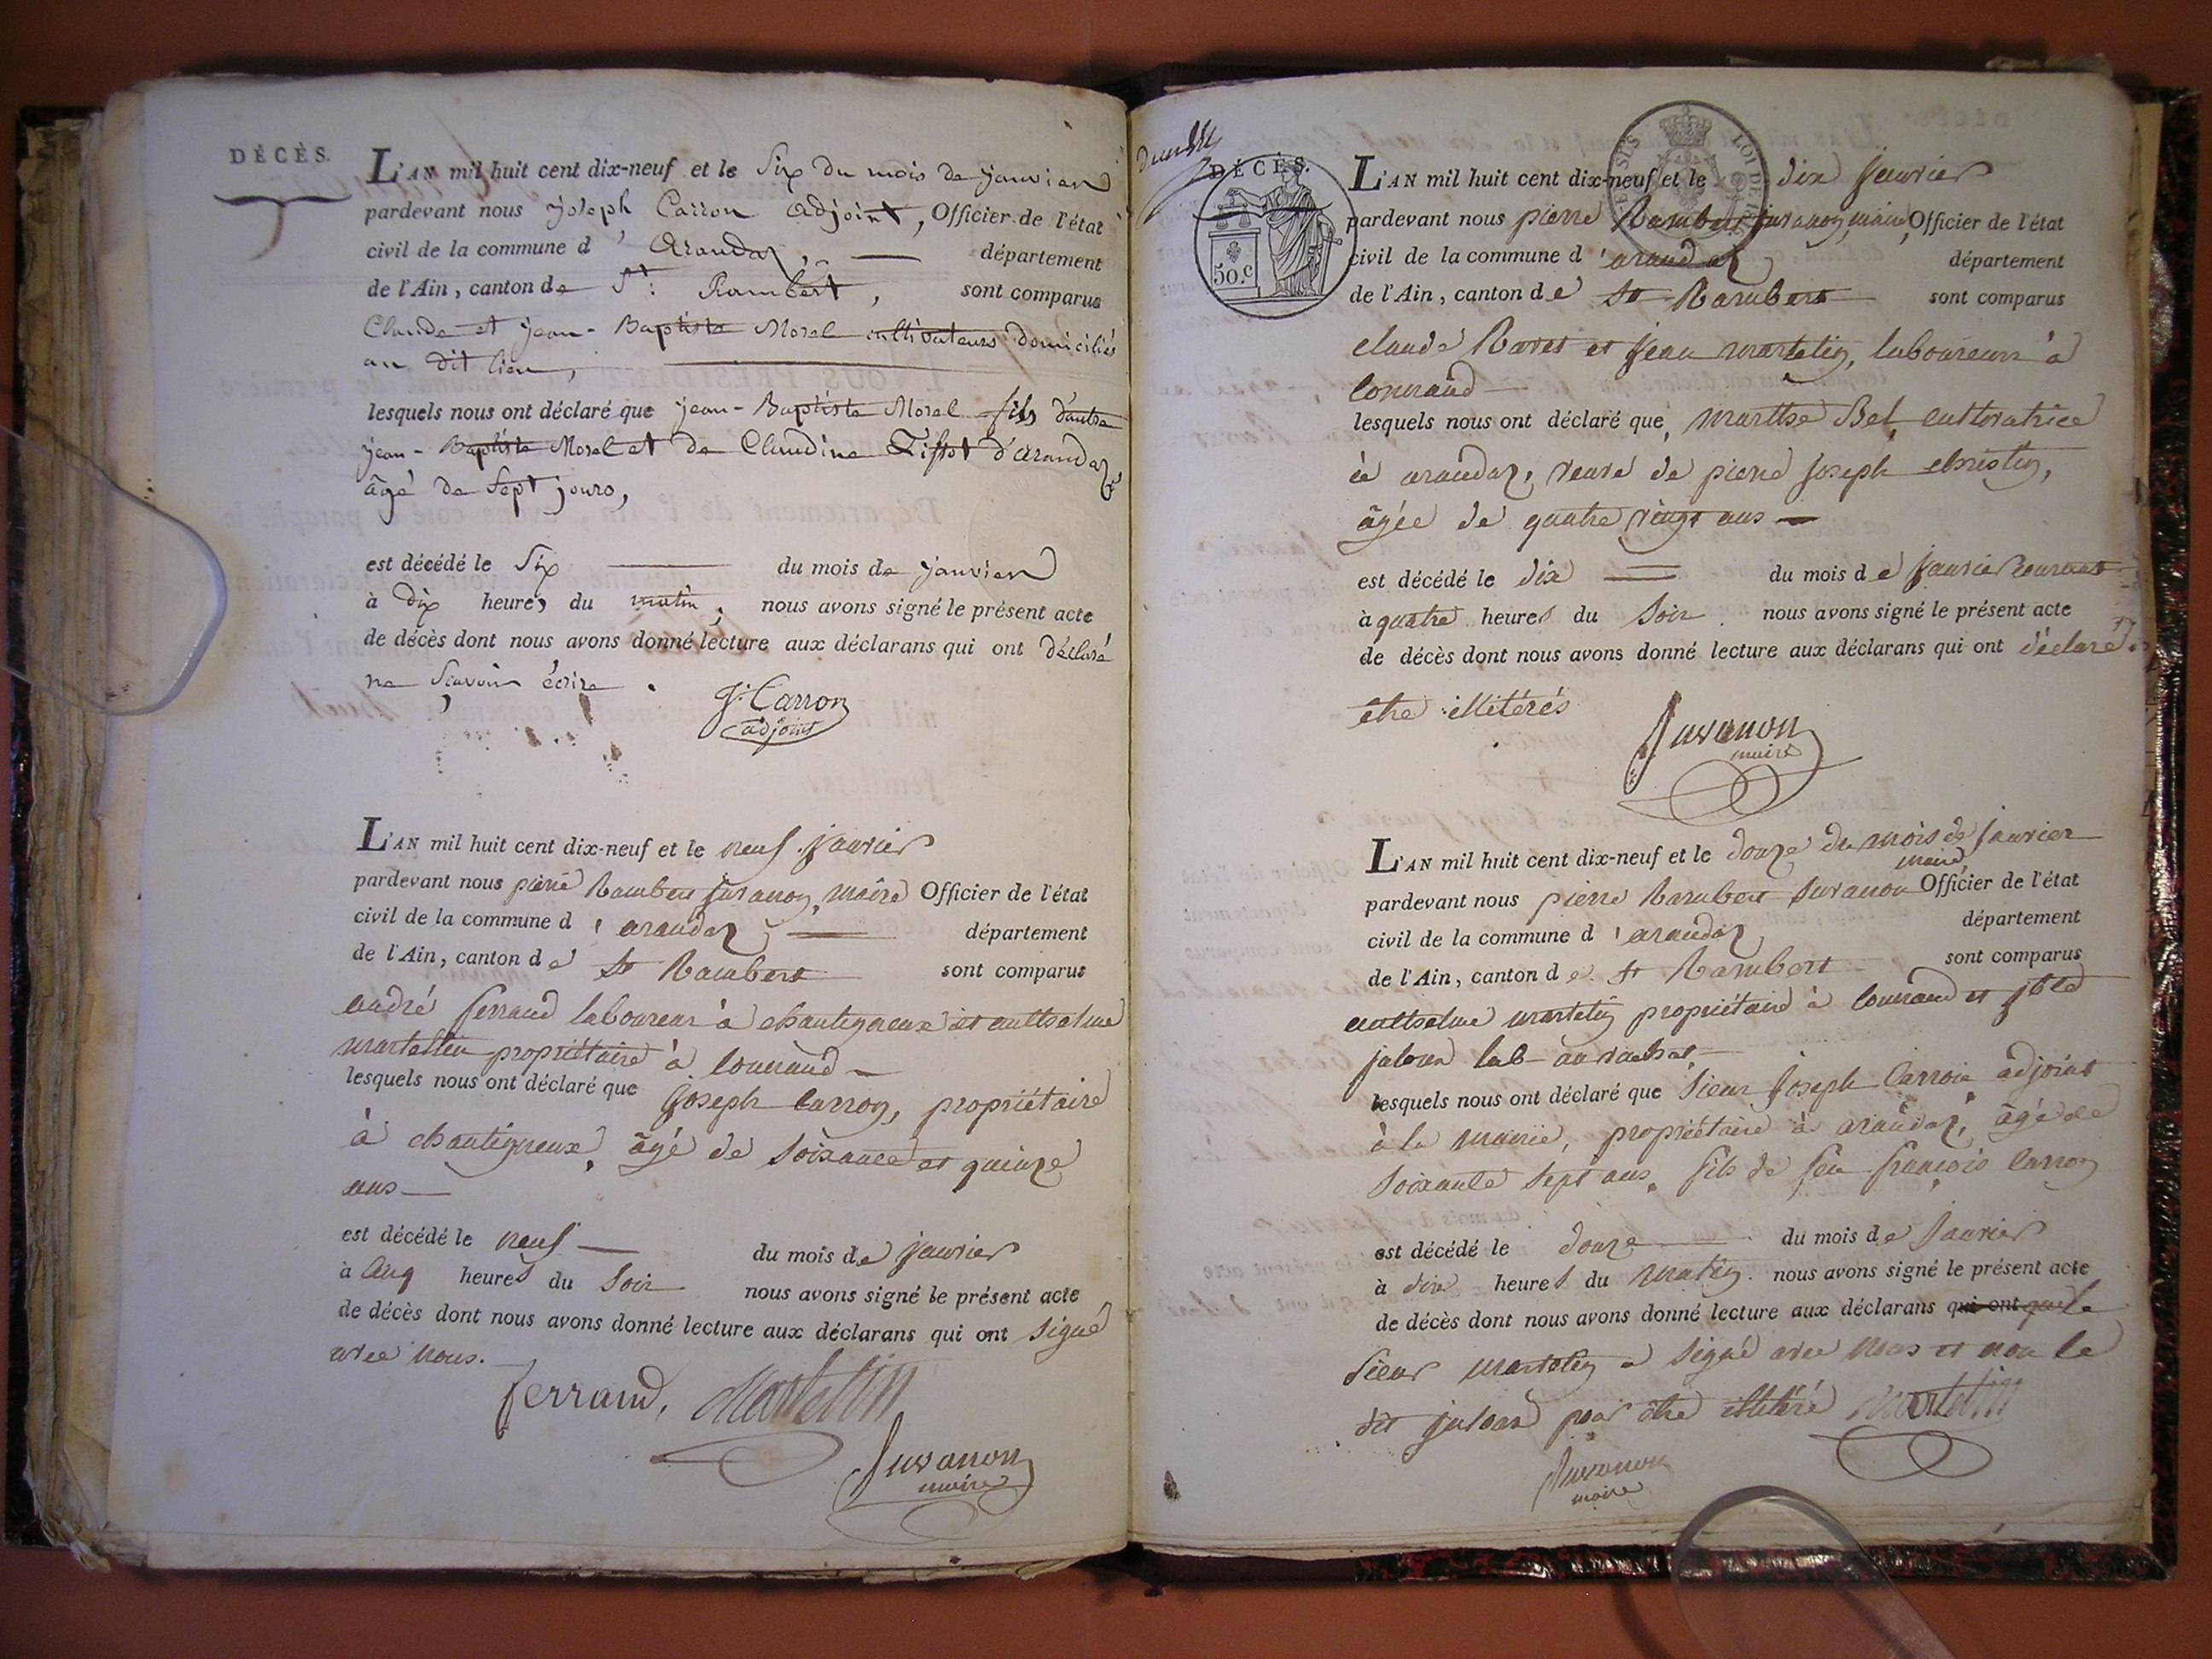 DÉCÈS.
L'AN mil huit cent dix-neuf et le Six du mois de janvier
pardevant nous joseph Carron adjoint, Officier de l'état
civil de la commune d'Arandaz, département
de l'Ain, canton de St. Rambert, sont comparus
Claude et jean-Baptiste Morel cultivateurs domiciliés
au dit lieu,
lesquels nous ont déclaré que jean-Baptiste Morel fils d'autre
jean-Baptiste Morel et de Claudine d'arandaz
âgé de Sept jours,
est décédé le Six du mois de janvier
à dix heures du matin, nous avons signé le présent acte
de décès dont nous avons donné lecture aux déclarans qui ont déclaré
ne Scavoir écrire.
J. Carron
adjoint
L'AN mil huit cent dix-neuf et le neuf janvier
pardevant nous pierre Rambert Juvanon, maire Officier de l'état
civil de la commune d'arandaz département
de l'Ain, canton de St Rambert sont comparus
andré ferrand laboureur à chantigneux et anthelme
martellin propriétaire à
lesquels nous ont déclaré que Joseph Carron, propriétaire
à chantigneux, âgé de soixante et quinze
ans
est décédé le neuf du mois de janvier
à cinq heures du soir nous avons signé le présent acte
de décès dont nous avons donné lecture aux déclarans qui ont signé
avec nous.
ferrand, Martelin
Juvanon
maire
DÉCÈS.
50.C
L'AN mil huit cent dix-neuf et le dix janvier
pardevant nous pierre Rambert juvanon, maire, Officier de l'état
civil de la commune d'arandaz département
de l'Ain, canton de St Rambert sont comparus
claude Ravet et jean martelin, laboureurs à
lesquels nous ont déclaré que, marthe Bel, cultivatrice
à arandaz, veuve de pierre joseph christin,
âgée de quatre vingt ans
est décédé le dix du mois de janvier courant
à quatre heures du soir. nous avons signé le présent acte
de décès dont nous avons donné lecture aux déclarans qui ont déclaré
être illitérés
Juvanon
maire
L'AN mil huit cent dix-neuf et le douze du mois de janvier
maire
pardevant nous pierre Rambert Juvanon Officier de l'état
civil de la commune d'arandaz département
de l'Ain, canton de St Rambert sont comparus
anthelme martelin propriétaire à et
lesquels nous ont déclaré que sieur Joseph Carron adjoint
à la mairie, propriétaire à arandaz, âgé de
soixante sept ans, fils de feu françois Carron
est décédé le douze du mois de janvier
à dix heures du matin. nous avons signé le présent acte
de décès dont nous avons donné lecture aux déclarans qui ont que le
sieur martelin a signé avec nous et non le
dit pour être illitéré Martelin
Juvanon
maire